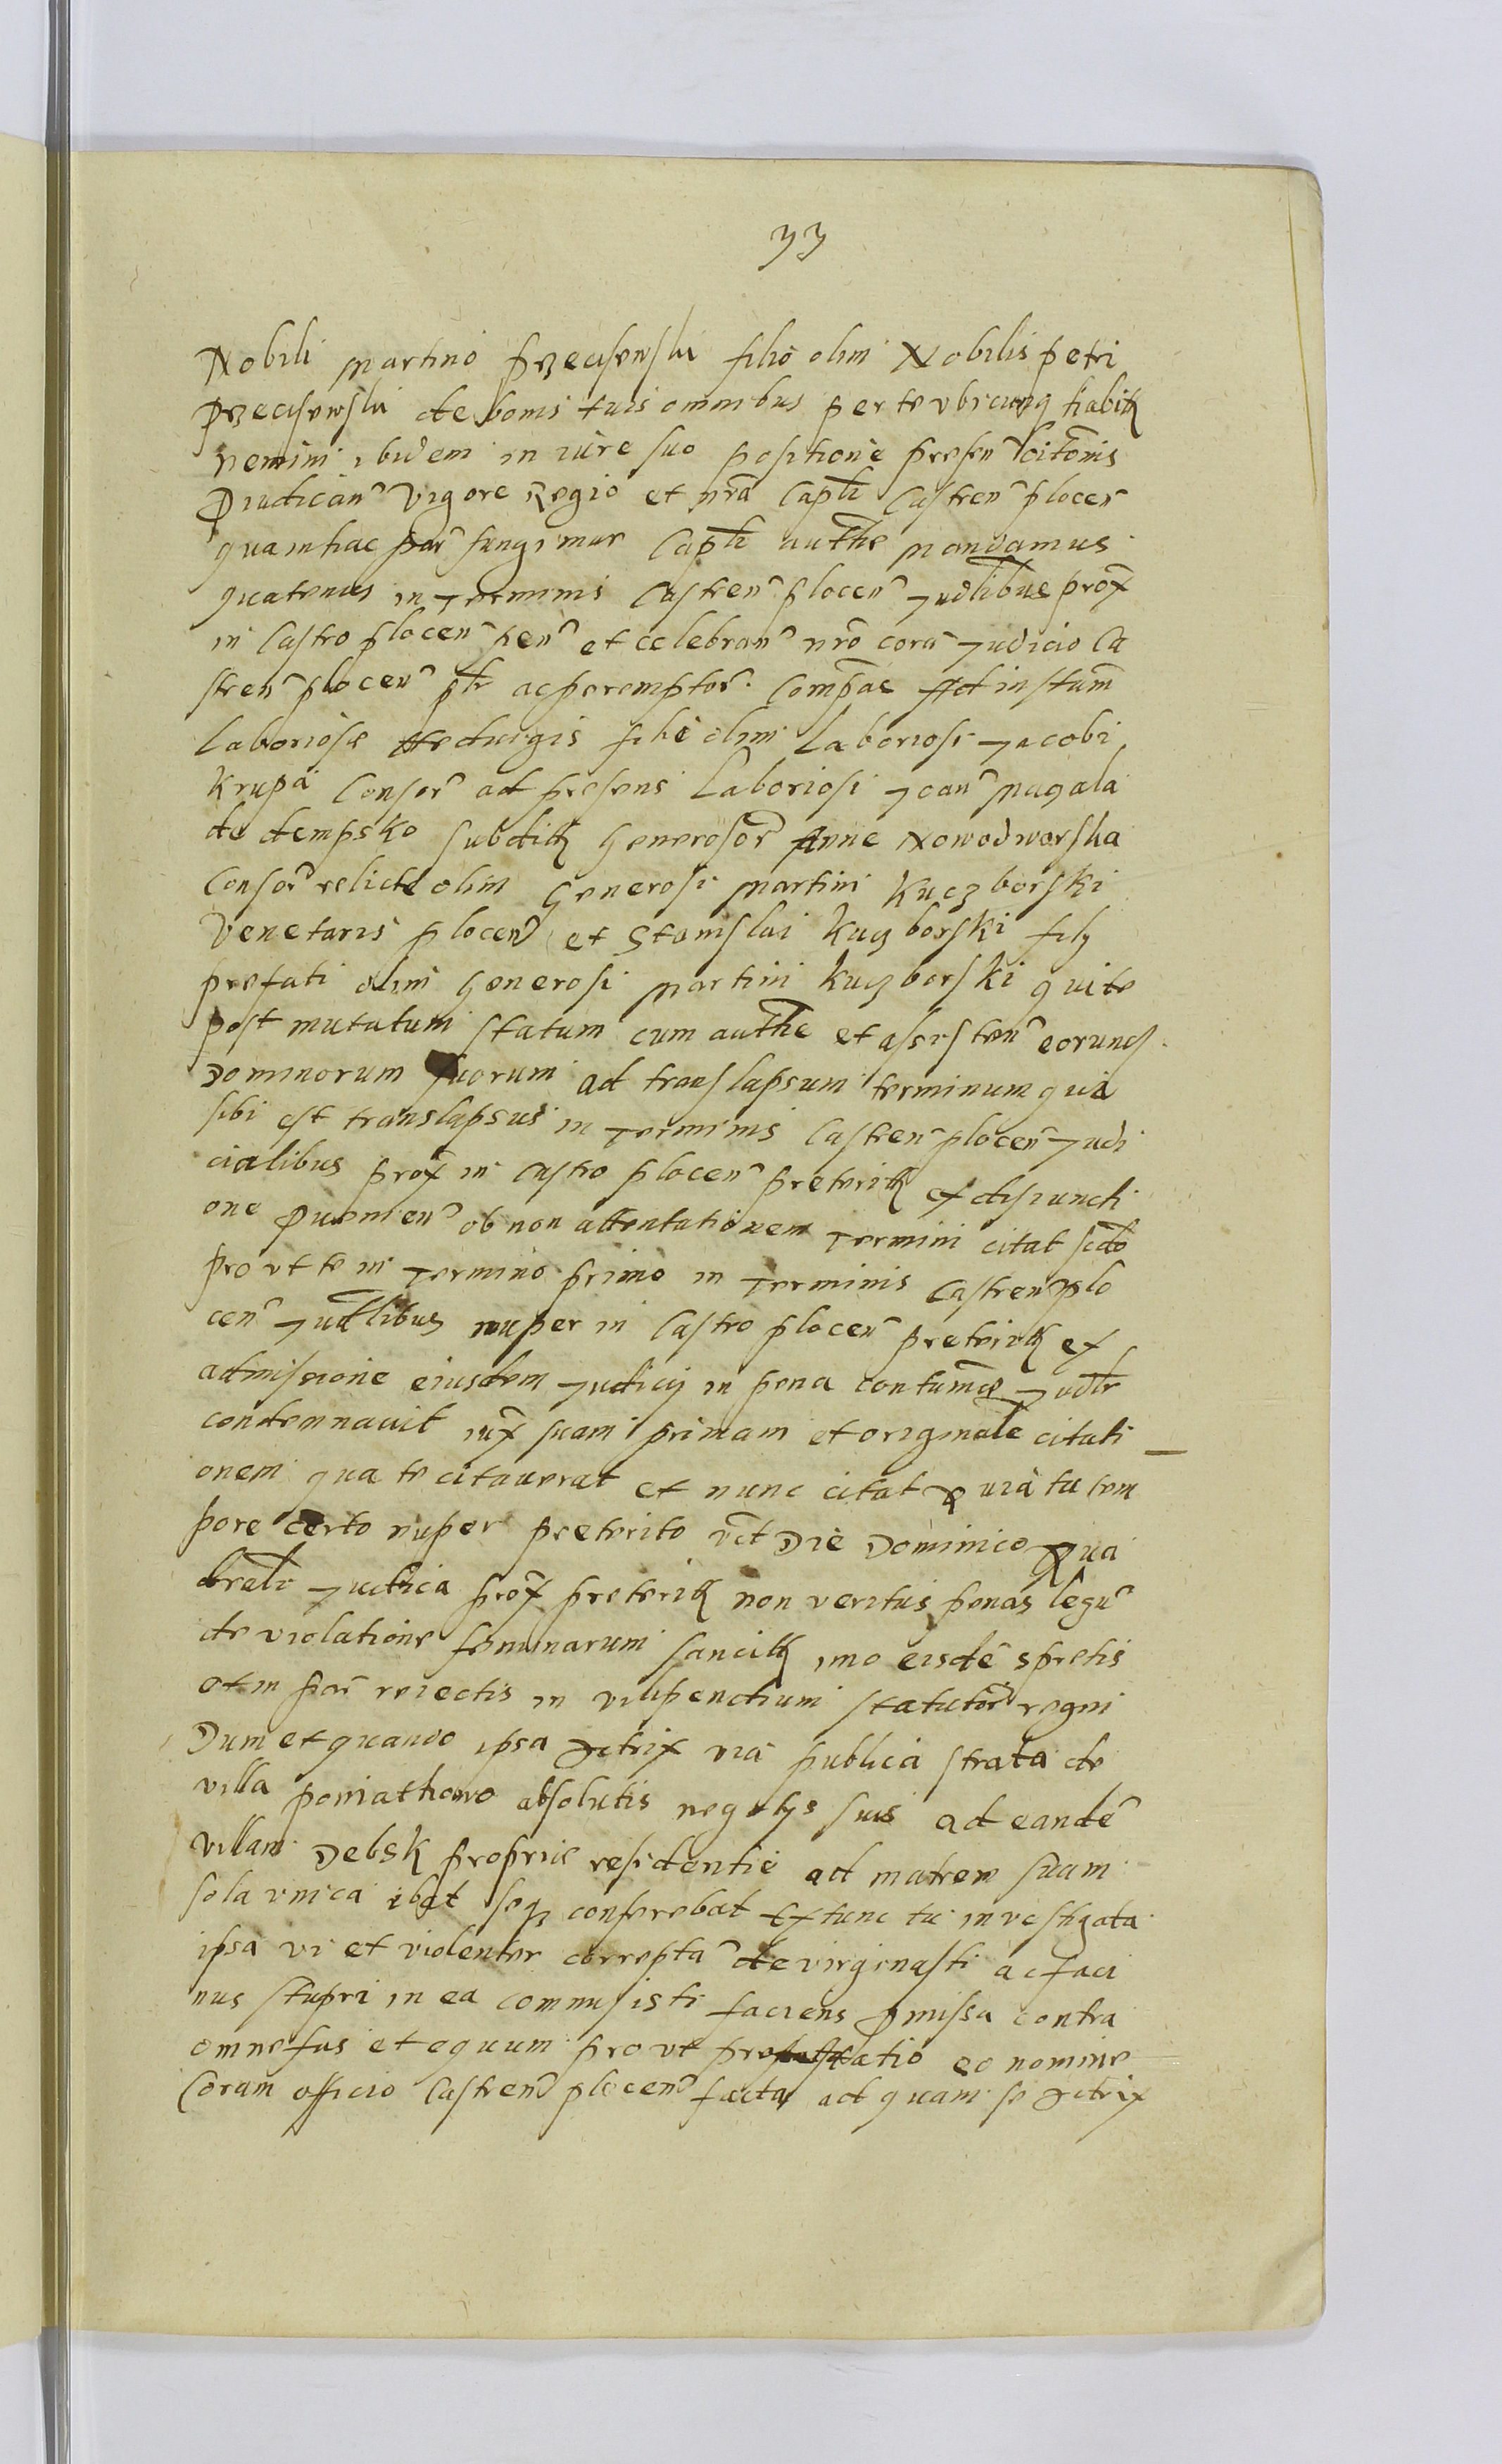 33
Nobili Martino Przeciſewſki filio olim Nobilis petri
Przeciſewſki de bonis tuis omnibus per te vbicunq habit
nemini ibidem in iure ſuo poſitione preſen citonis
p̱iudican̄ Vigore Regio et nr̄a Capt̄li Caſtren̄ plocen̄
qua in hac par̄ fungimur Capt̄li auth̄e Mandamus
quatenus in Terminis Caſtren̄ plocen̄ Judl̄ibus prox̄
in Caſtro plocen̄ ten̄ et celebran̄ nr̄o corā Judicio Ca
ſtren̄ plocen̄ pl̄r ac peremptor̄. Compāe Ad inſtām
Laborioſe Heduigis filie olim Laborioſi Jacobi
Krupa Conſor̄ ad preſens Laborioſi Joan̄ Magala
de dempsko ſubdit Generoſor̄ Anne Nowodworſka
Conſor̄ relicte olim Generoſi Martini Kuczborſki
Venetaris plocen̄ et Staniſlai Kuczborſki filÿ
prefati olim Generoſi Martini Kuczborſki qui te
poſt mutatum ſtatum cum auth̄e et aſsiſten̄ eorund
Dominorum ſuorum ad tranſlapsum terminum qui a
ſibi eſt translapsus in Terminis Caſtren̄ plocen̄ Judi
cialibus prox̄ in Caſtro plocen̄ preterit ex diſiuncti
one p̱uenien̄ ob non attentationem Termini citat ſcdo
pro vt te in Termino primo in Terminis Caſtren̄ plo
cen̄ Judl̄ibus nuper in Caſtro plocen̄ preterit ex
admiſsione eiusdem Judicÿ in pena contumāe Judl̄r
condemnauit iux̄ ſuam primam et originalē citati
onem qua te citauerat et nunc citat Quia tu tem
pore certo nuper preterito vc̄t Die Dominico Qua
drāli Judica prox̄ preterit non veritus penas legū
de violatione feminarum ſancit imo eisdē spretis
et in par̄ reiectis in vilipendium ſtatutor̄ regni
Dum et quando ipsa Actrix via publica ſtrata de
villa poniathowo abſolutis negotÿs ſuis ad eandē
villam Debsk proprie reſidentie ad matrem ſuam
ſola vnica ibat ſeq conferebat Extunc tu inveſtigata
ipsa vi et violenter correptā devirginaſti ac faci
nus ſtupri in ea commiſisti faciens p̱miſsa contra
omne fas et equum pro vt proteſtatio eo nomine
Coram officio Caſtren̄ plocen̄ facta ad quam ſe Actrix